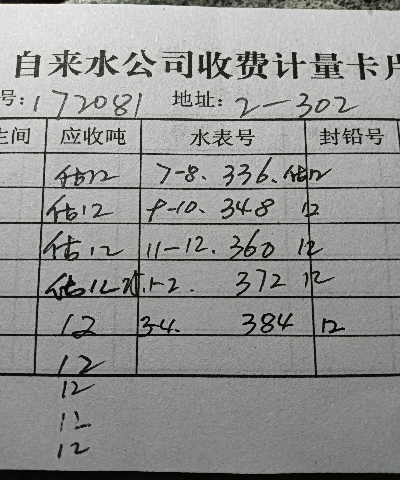 自来水公司收费计量卡片
号:172081 地址:2-302
生间 应收吨 水表号 封铅号
估12 7-8. 336. 估12
估12 9-10. 348 12
估12 11-12. 360 12
估12 1-2. 372 12
12 3-4. 384 12
12
12
12
12